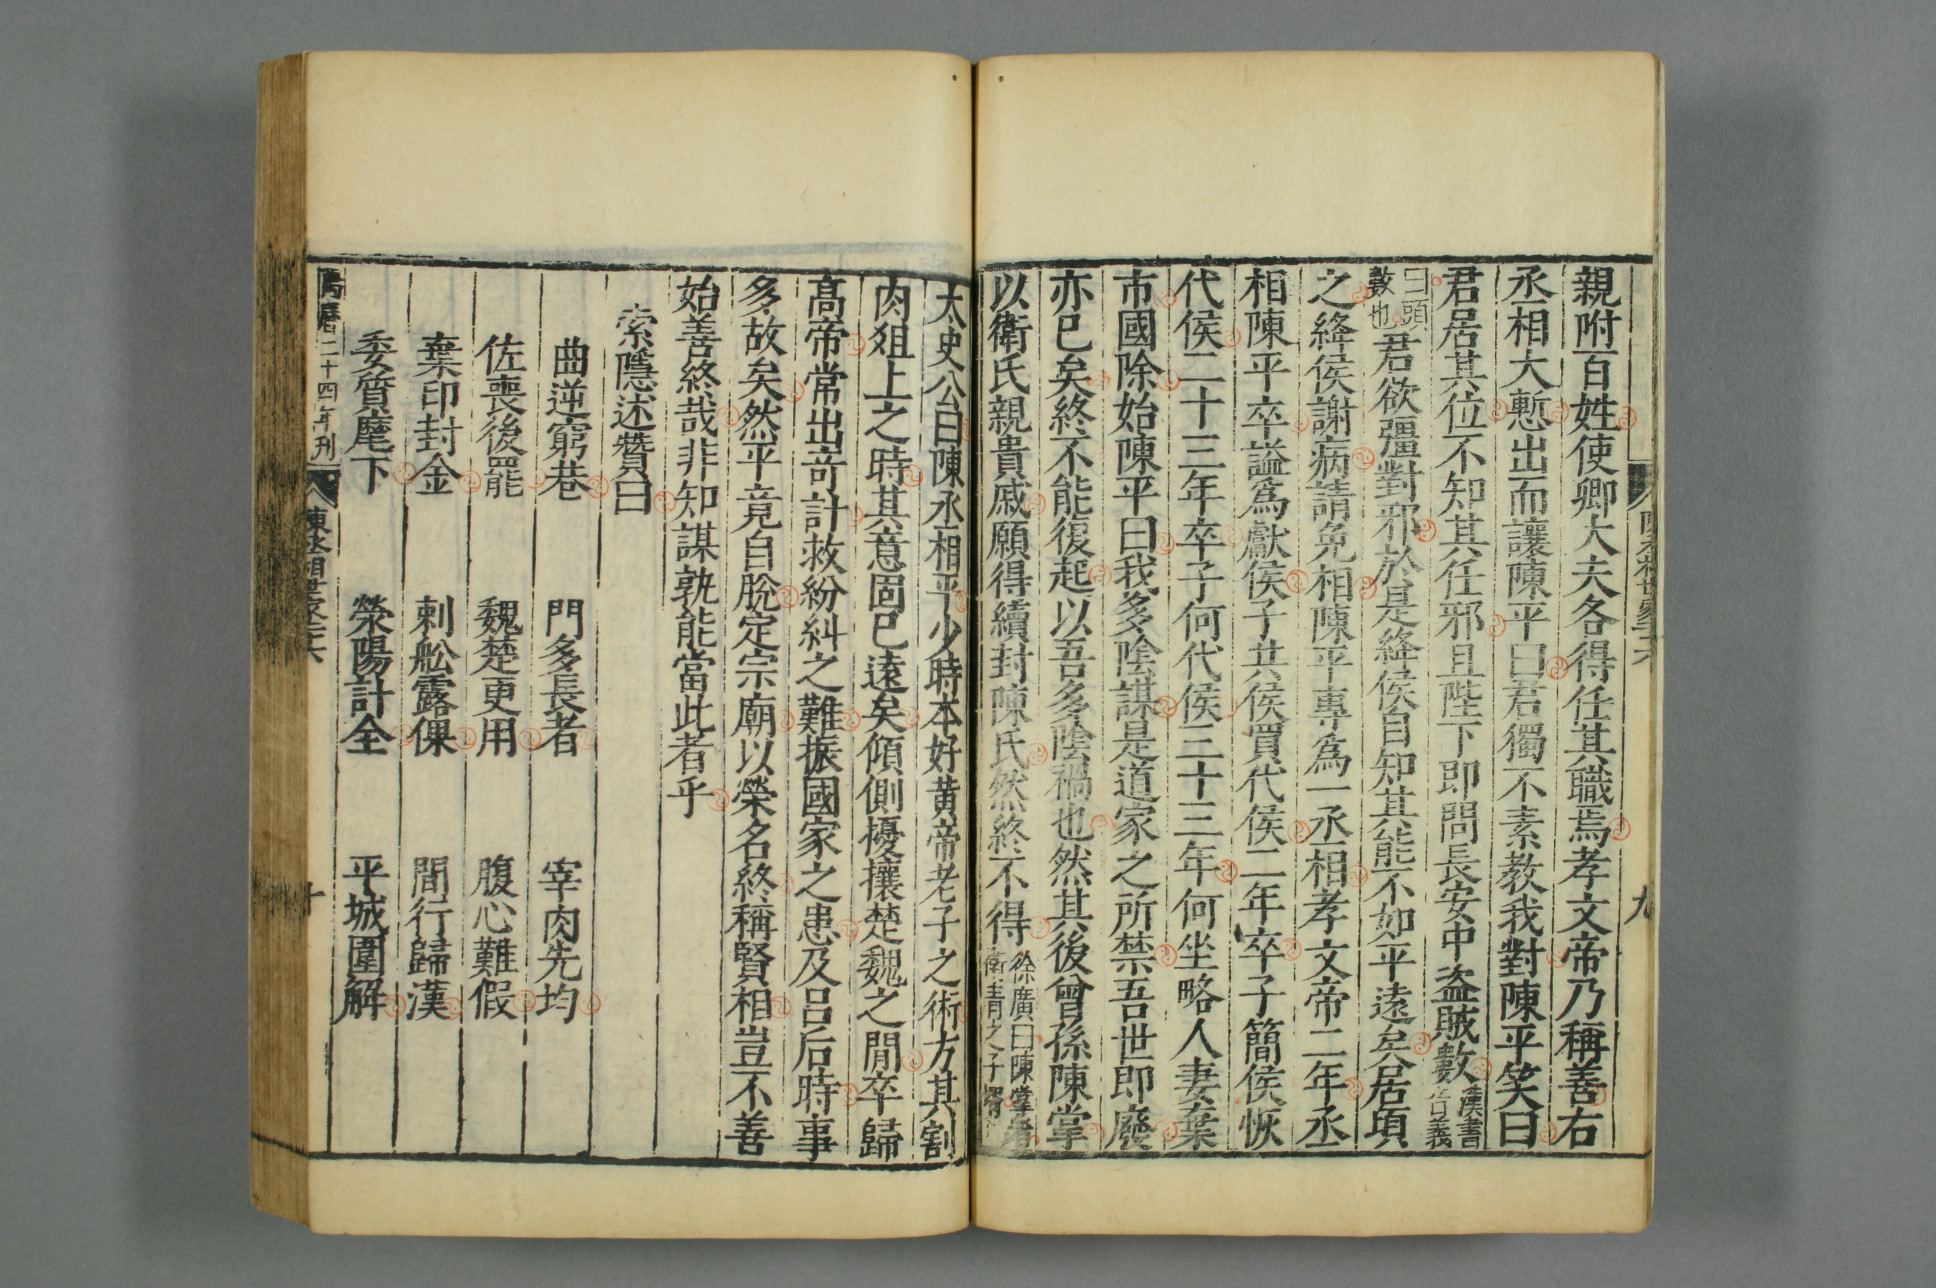 陳丞相世家二十六
九
親附百姓使卿大夫各得任其職焉孝文帝乃稱善右
丞相大慙出而讓陳平曰君獨不素教我對陳平笑曰
君居其位不知其任邪且陛下即問長安中盜賊數漢書音義
曰頭數也君欲彊對邪於是絳侯自知其能不如平遠矣居頃
之絳侯謝病請免相陳平專爲一丞相孝文帝二年丞
相陳平卒謚爲獻侯子共侯買代侯二年卒子簡侯恢
代侯二十三年卒子何代侯二十三年何坐略人妻棄
市國除始陳平曰我多陰謀是道家之所禁吾世即廢
亦已矣終不能復起以吾多陰禍也然其後曾孫陳掌
以衛氏親貴戚願得續封陳氏然終不得徐廣曰陳掌者衛青之子壻
太史公曰陳丞相平少時本好黄帝老子之術方其割
肉俎上之時其意固已遠矣傾側擾攘楚魏之閒卒歸
高帝常出奇計救紛糾之難振國家之患及呂后時事
多故矣然平竟自脫定宗廟以榮名終稱賢相豈不善
始善終哉非知謀孰能當此者乎
索隱述贊曰
曲逆窮巷 門多長者 宰肉先均
佐喪後罷 魏楚更用 腹心難假
棄印封金 刺舩露倮 間行歸漢
委質麾下 滎陽計全 平城圍解
萬曆二十四年刊
陳丞相世家二十六
十